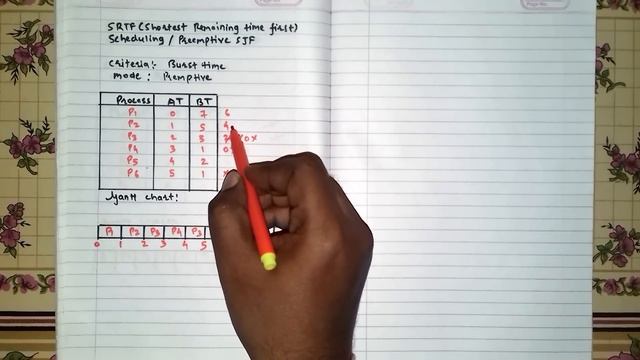 SRTF (Shortest Remaining time first)
Scheduling / Preemptive SJF
Criteria:- Burst time
mode : Premptive
Process AT BT
P1 0 7 6
P2 1 5 4
P3 2 3
P4 3 1 0
P5 4 2
P6 5 1
Gantt chart:
P1 P2 P3 P4 P3
0 1 2 3 4 5